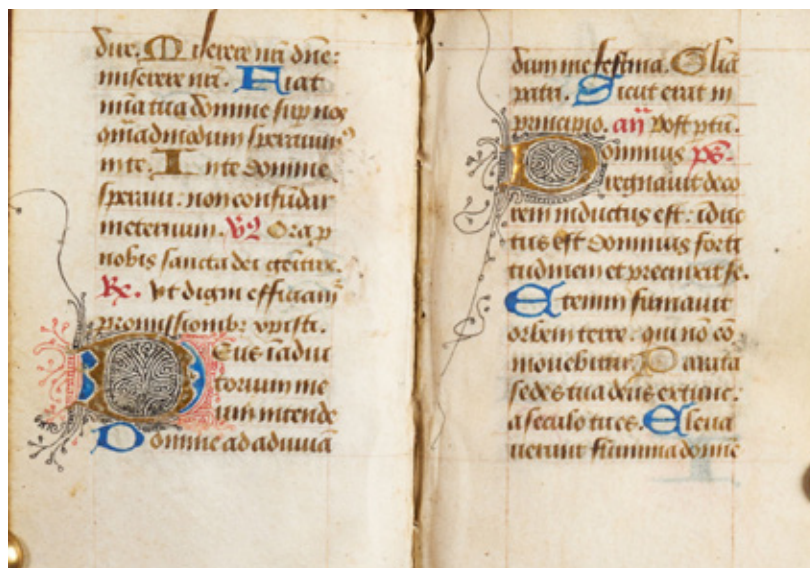 dire. Miserere nr̄i dn̄e:
miserere nr̄i. Fiat
mīa tua domine sup nos
qm̄admodum sperauimꝰ
in te. In te domine
speraui: non confundar
in eternum. V̄ Ora p
nobis sancta dei genitrix.
Rx. Vt digni efficiam̄
promissionibꝫ xpisti.
Deus in adiu
torium me
um intende
Domine ad adiuuā
dum me festina. Gliā
patri. Sicut erat in
principio. an̄ Post ptū.
Dominus ps.
regnauit deco
rem indutus est: indu
tus est dominus forti
tudinem et precinxit se.
Etenim firmauit
orbem terre: qui nō cō
mouebitur. Parata
sedes tua deus ex tunc:
a seculo tu es. Eleua
uerunt flumina domine